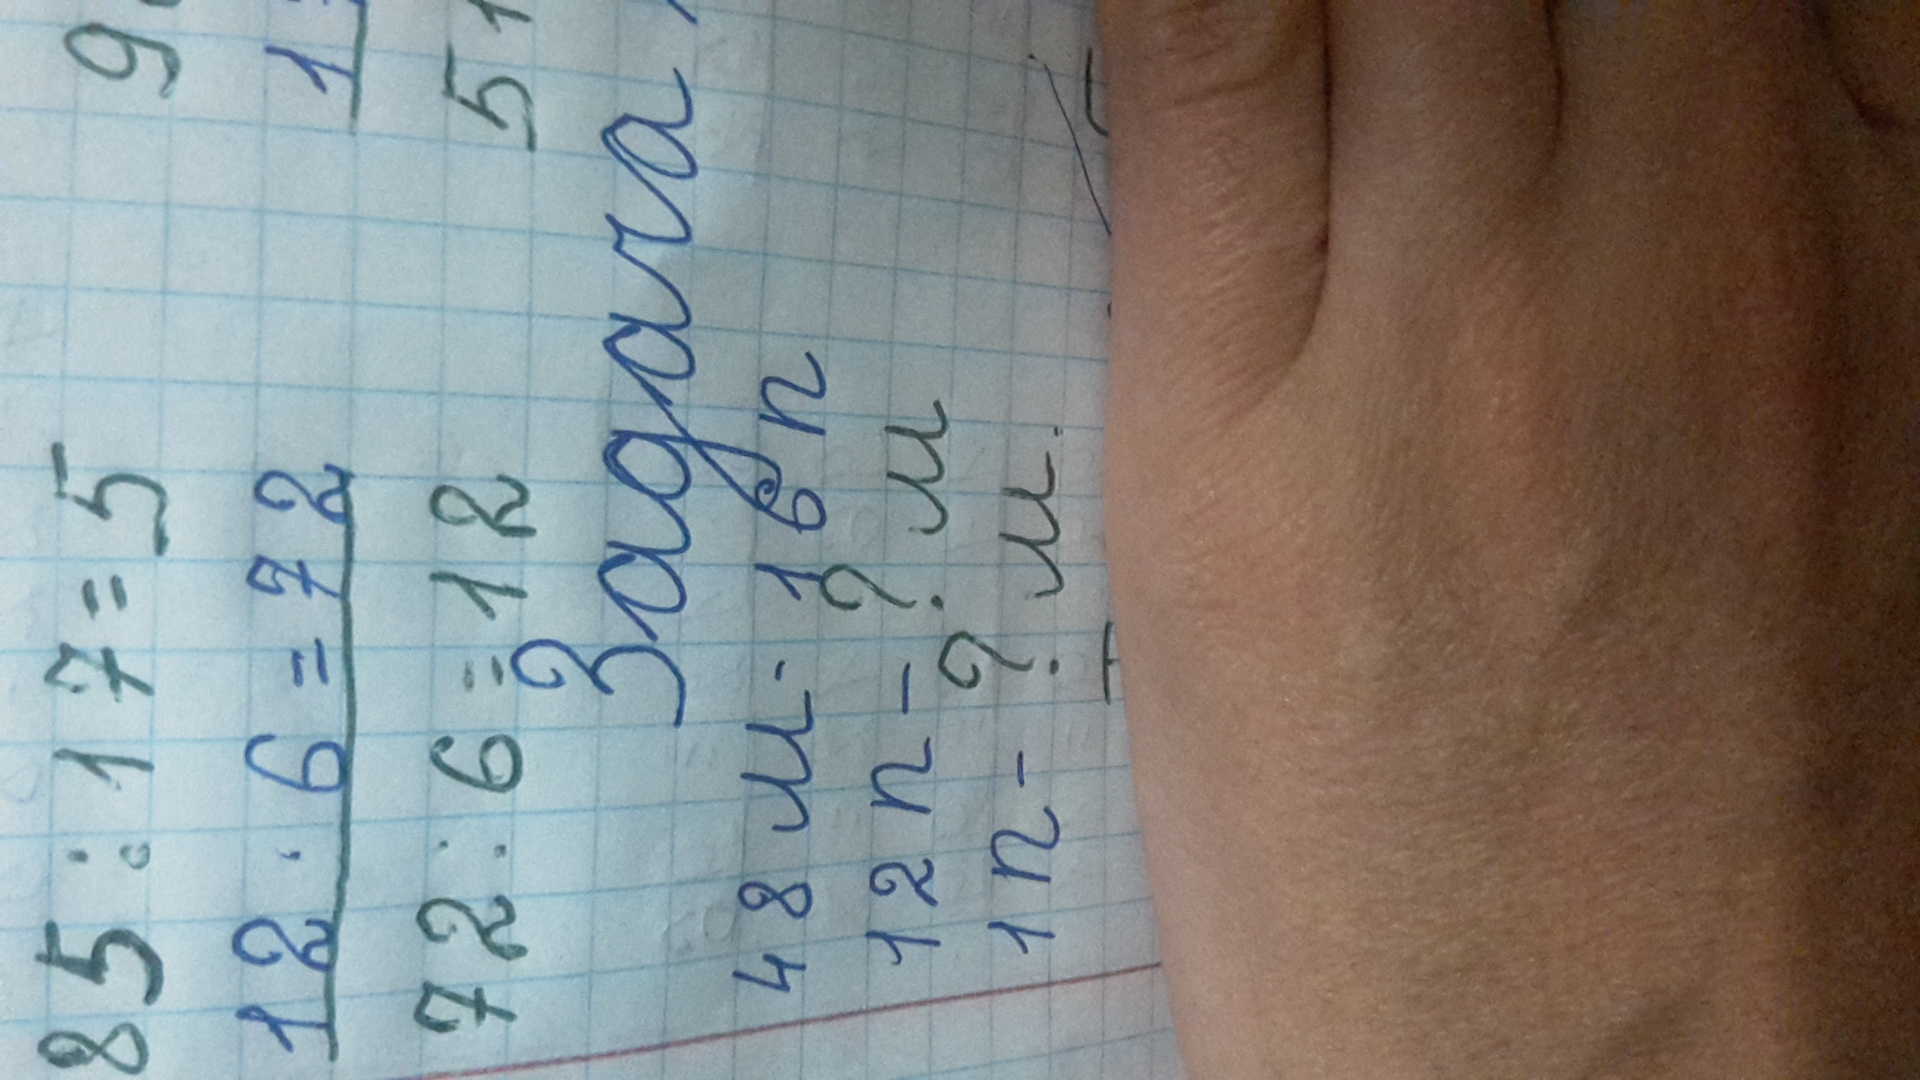 85 : 17 = 5 9
12 · 6 = 72 1
72 : 6 = 12 51
Задача
48 м - 16 п
12 п - ? м
1 п - ? м.